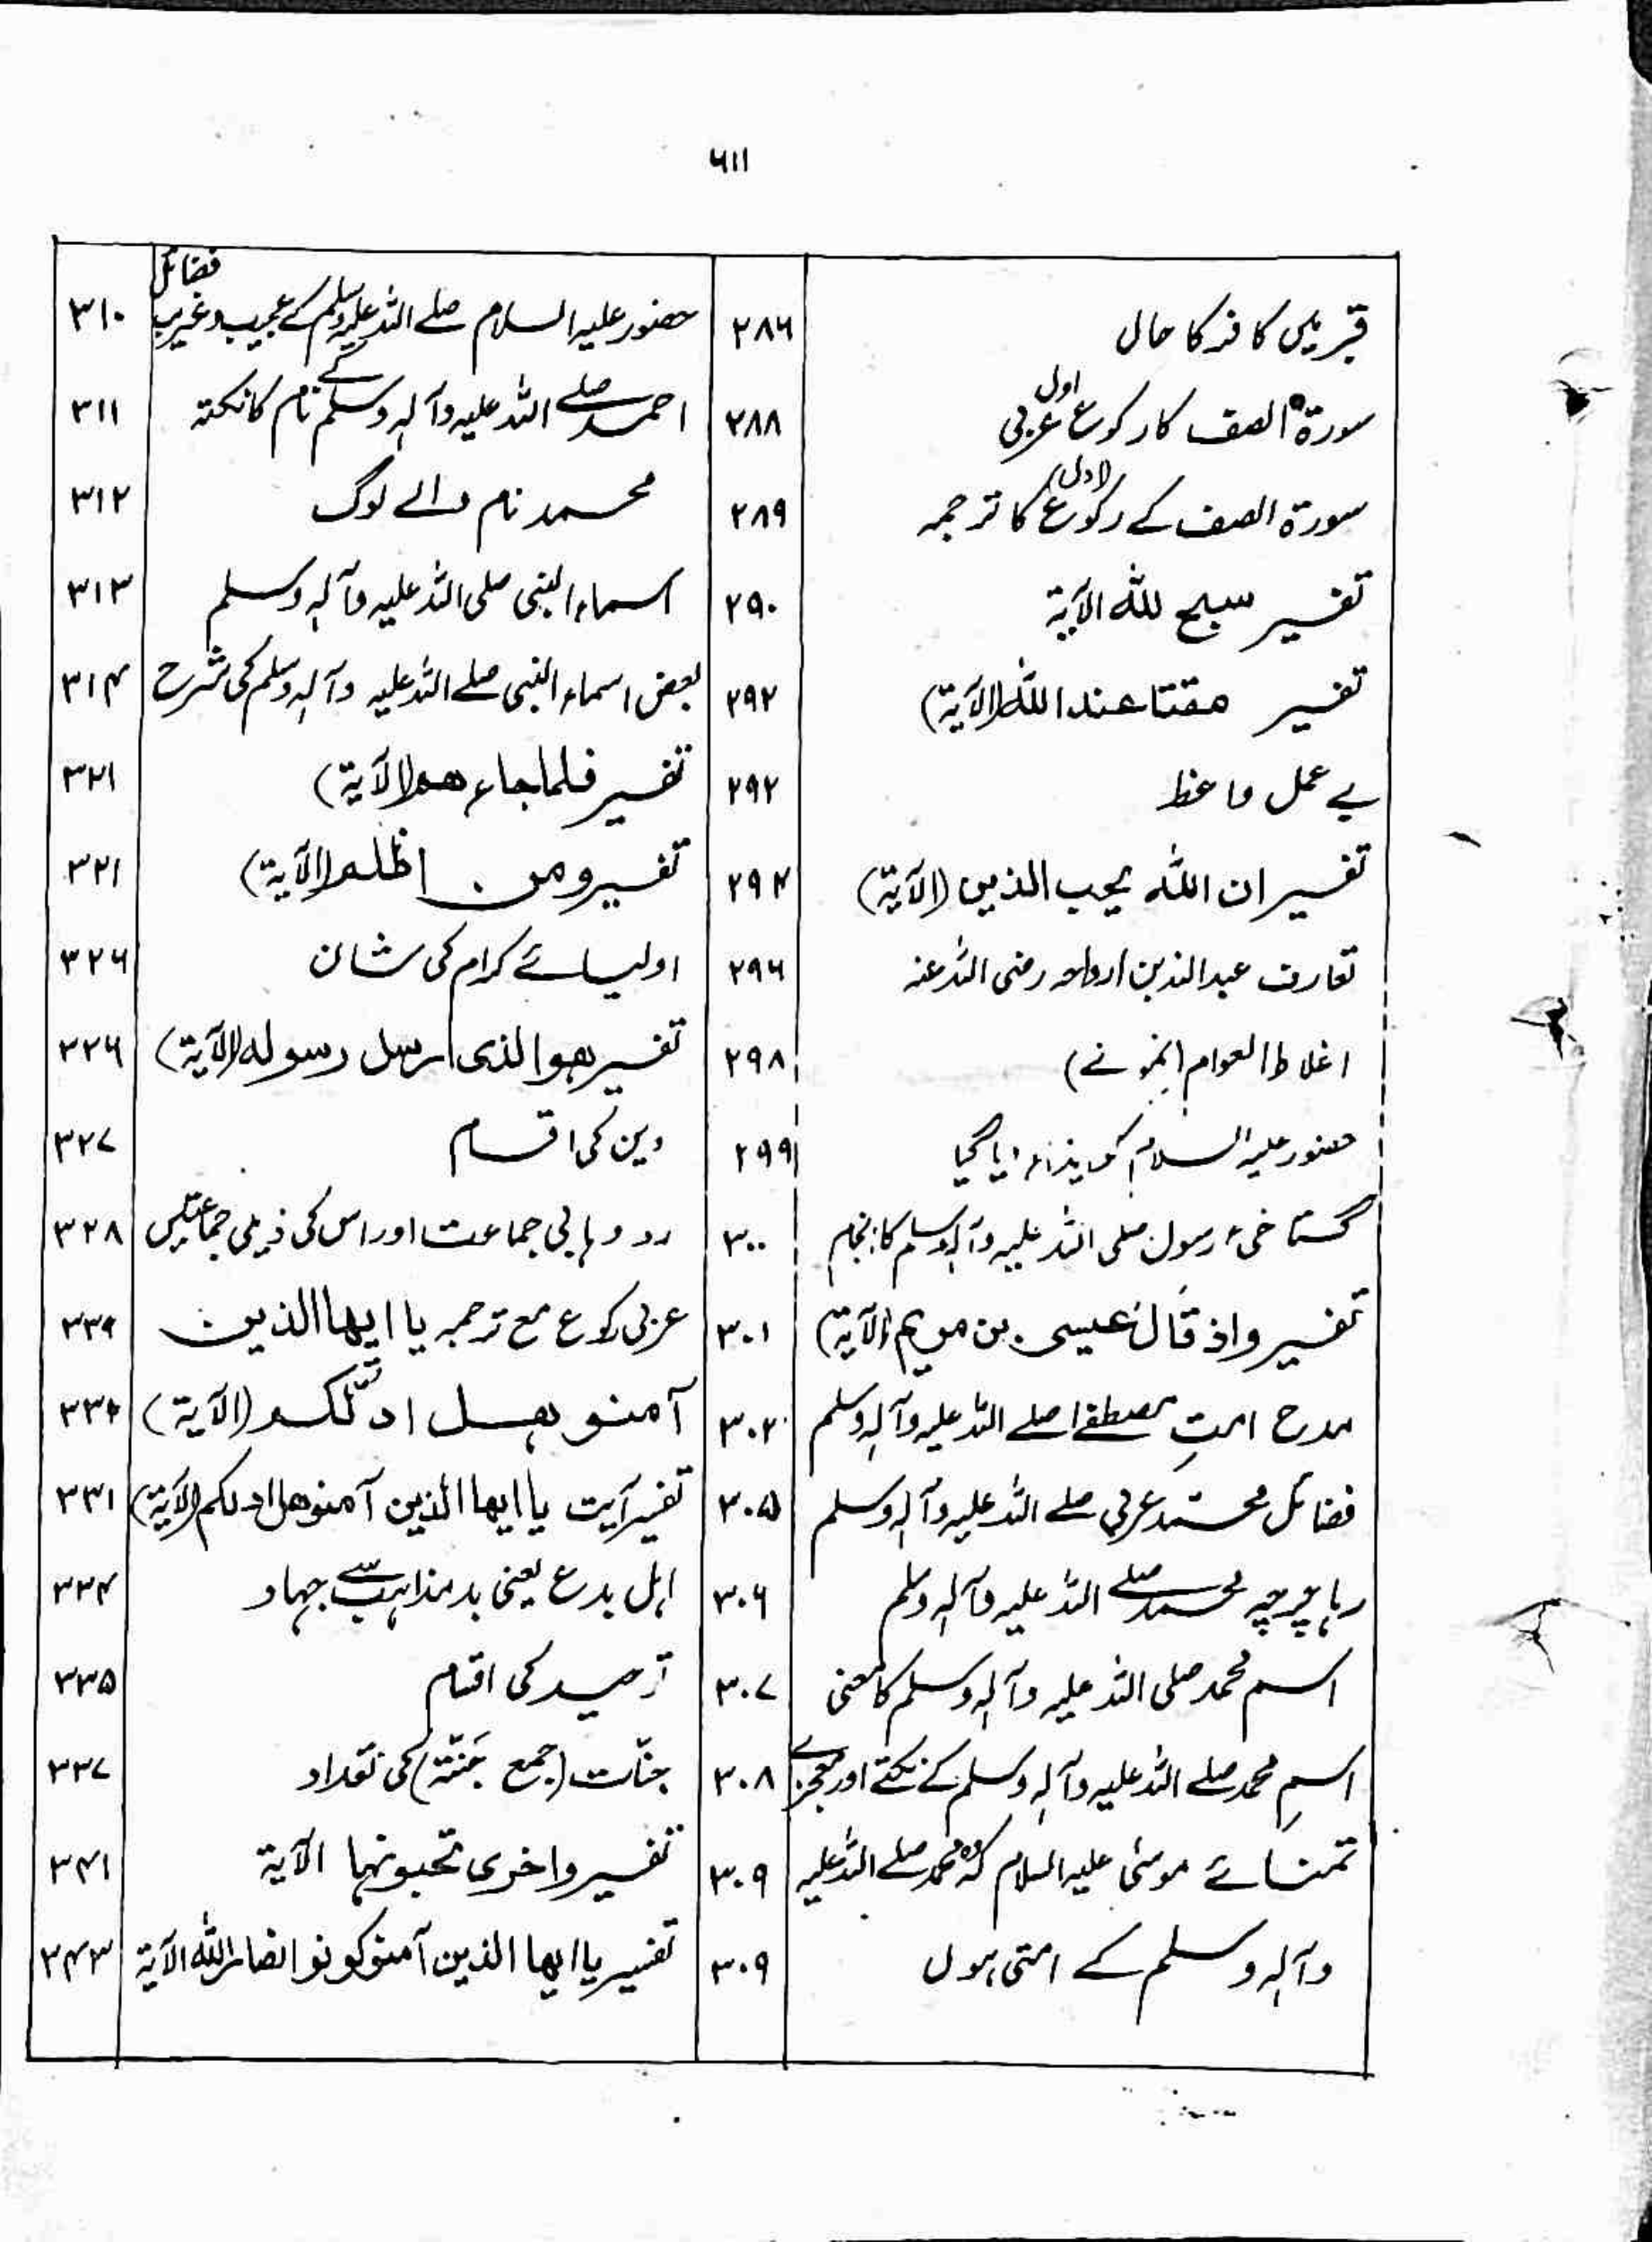 ۶۱۱
قبر میں کافر کا حال ۲۸۶
سورۃ الصف کا رکوع اول عربی ۲۸۸
سورۃ الصف کے رکوع (اول) کا ترجمہ ۲۸۹
تفسیر سبح للہ الآیۃ ۲۹۰
تفسیر مقتا عند اللہ (الآیۃ) ۲۹۲
بے عمل واعظ ۲۹۲
تفسیر ان اللہ یحب الذین (الآیۃ) ۲۹۴
تعارف عبداللہ بن ارواحہ رضی اللہ عنہ ۲۹۶
اغلاط العوام (نمونے) ۲۹۸
حضور علیہ السلام کو ایذاء دیا گیا ۲۹۹
گستاخیٔ رسول صلی اللہ علیہ وآلہ وسلم کا انجام ۳۰۰
تفسیر واذ قال عیسی بن مریم (الآیۃ) ۳۰۱
مدح امتِ مصطفےٰ صلے اللہ علیہ وآلہ وسلم ۳۰۲
فضائل محمد عربی صلے اللہ علیہ وآلہ وسلم ۳۰۵
رہا چرچہ محمد صلے اللہ علیہ وآلہ وسلم ۳۰۶
اسم محمد صلی اللہ علیہ وآلہ وسلم کا معنی ۳۰۷
اسمِ محمد صلے اللہ علیہ وآلہ وسلم کے نکتے اور معجزے ۳۰۸
تمنائے موسیٰ علیہ السلام کہ وہ محمد صلے اللہ علیہ ۳۰۹
وآلہ وسلم کے امتی ہوں ۳۰۹
حضور علیہ السلام صلے اللہ علیہ وسلم کے عجیب و غریب فضائل ۳۱۰
احمد صلے اللہ علیہ وآلہ وسلم کے نام کا نکتہ ۳۱۱
محمد نام والے لوگ ۳۱۲
اسماء النبی صلی اللہ علیہ وآلہ وسلم ۳۱۳
بعض اسماء النبی صلے اللہ علیہ وآلہ وسلم کی شرح ۳۱۴
تفسیر فلما جاءھم (الآیۃ) ۳۲۱
تفسیر ومن اظلم (الآیۃ) ۳۲۱
اولیائے کرام کی شان ۳۲۶
تفسیر ھوالذی ارسل رسولہ (الآیۃ) ۳۲۶
دین کی اقسام ۳۲۷
رد وہابی جماعت اور اس کی ذیلی جماعتیں ۳۲۸
عربی رکوع مع ترجمہ یا ایھا الذین ۳۳۰
آمنو ھل ادلکم (الآیۃ) ۳۳۰
تفسیر آیت یا ایھا الذین آمنو ھل ادلکم (الآیۃ) ۳۳۱
اہل بدع یعنی بد مذاہب سے جہاد ۳۳۴
توحید کی اقسام ۳۳۵
جنّات (جمع جَنّۃ) کی تعداد ۳۳۷
تفسیر واخری تحبونہا الآیۃ ۳۴۱
تفسیر یا ایھا الذین آمنو کونو انصار اللہ الآیۃ ۳۴۳